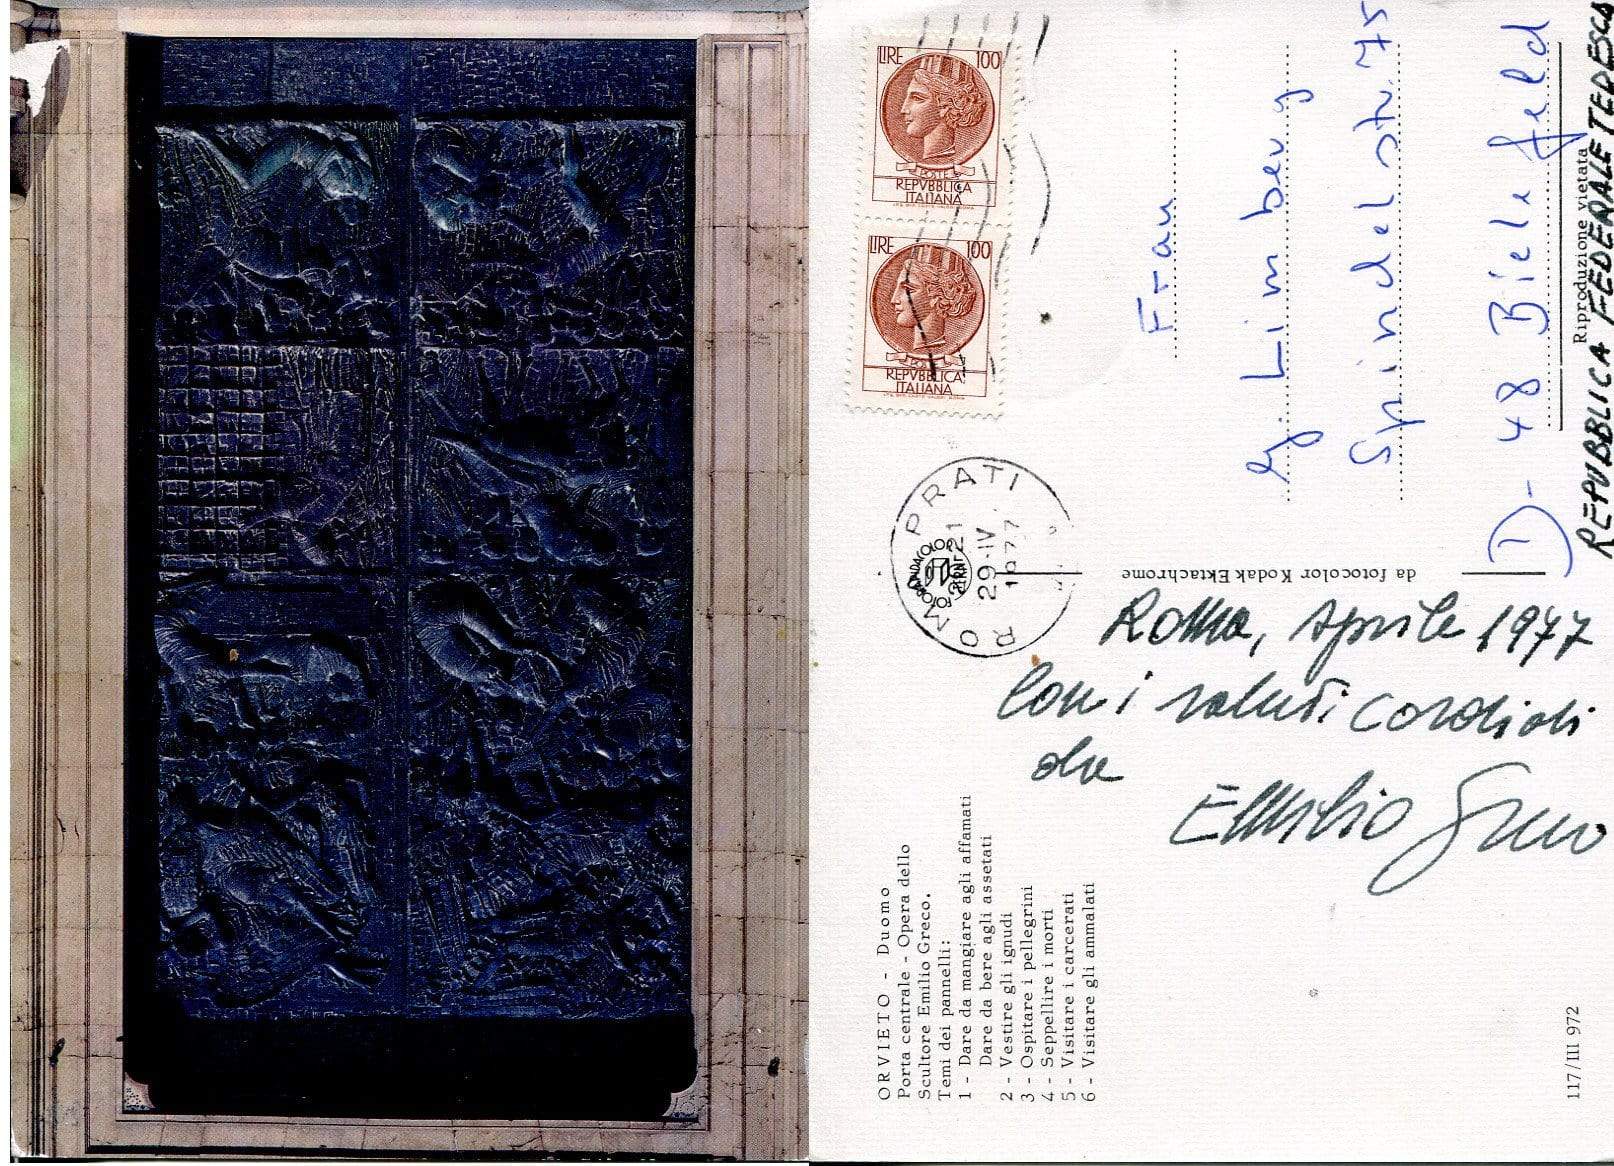 LIRE 100
POSTE
REPVBBLICA
ITALIANA
LIRE 100
POSTE
REPVBBLICA
ITALIANA
ROMA PRATI
21
29-IV
1977
Frau
Limberg
Spindelstr. 75
D-48 Bielefeld
REPUBBLICA FEDERALE TEDESCA
Riproduzione vietata
da fotocolor Kodak Ektachrome
Roma, Aprile 1977
Con i saluti cordiali
da
Emilio Greco
ORVIETO - Duomo
Porta centrale - Opera dello
Scultore Emilio Greco.
Temi dei pannelli:
1 - Dare da mangiare agli affamati
Dare da bere agli assetati
2 - Vestire gli ignudi
3 - Ospitare i pellegrini
4 - Seppellire i morti
5 - Visitare i carcerati
6 - Visitare gli ammalati
117/III 972